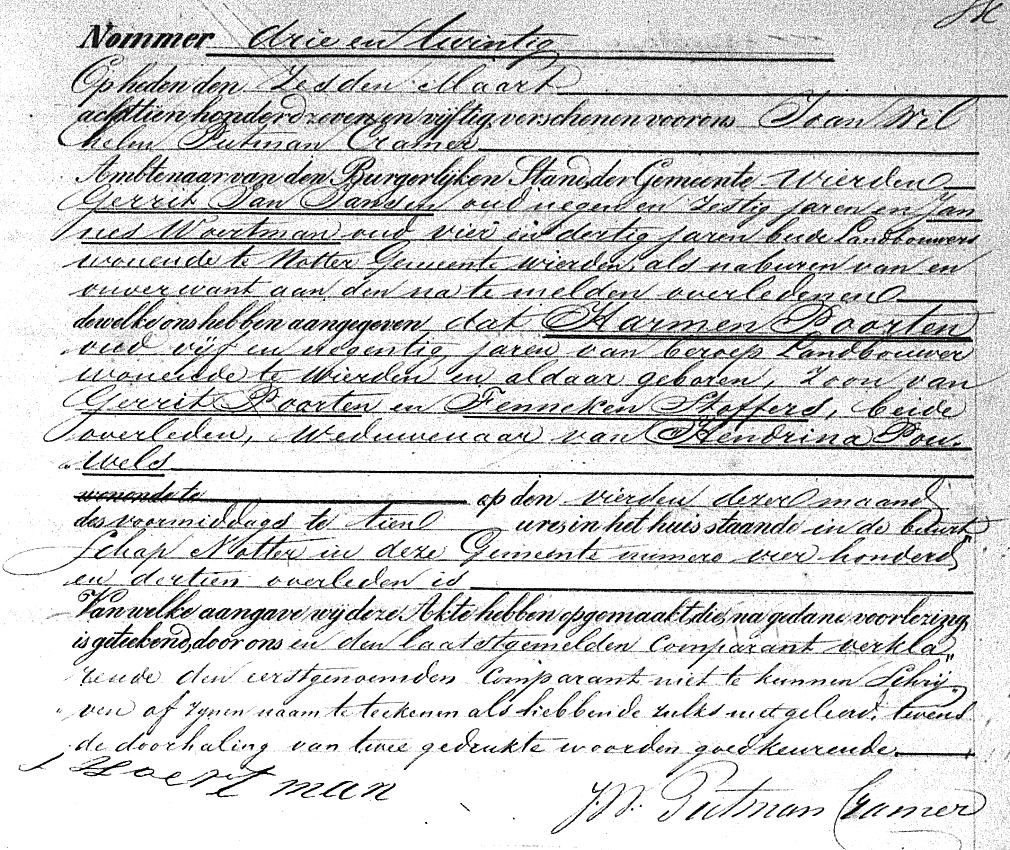 Nommer drie en twintig
Op heden den Zesden Maart
achttien honderd zeven en vijftig, verschenen voor ons Joan Wil
helm Putman Cramer
Ambtenaar van den Burgerlijken Stand, der Gemeente Wierden
Gerrit Jan Jansen oud negen en zestig jaren en Jan
nes Woertman oud vier en dertig jaren beide Landbouwers
wonende te Notter Gemeente Wierden, als naburen van en
onverwant aan den na te melden overledenen
dewelke ons hebben aangegeven, dat Harmen Poorten
oud vijf en negentig jaren van beroep Landbouwer
wonende te Wierden en aldaar geboren, Zoon van
Gerrit Poorten en Fenneken Stoffers, beide
overleden, Weduwenaar van Hendrina Pou-
wels
wonende te op den vierden dezer maand
des voormiddags te tien ure, in het huis staande in de buurt„
schap Notter in deze Gemeente numero vier honderd
en dertien overleden is
Van welke aangave wij deze Akte hebben opgemaakt, die, na gedane voorlezing,
is geteekend, door ons en den laatstgemelden Comparant verkla„
rende den eerstgenoemden Comparant niet te kunnen Schrij„
ven of zynen naam te teekenen als hebbende zulks niet geleerd, tevens
de doorhaling van twee gedrukte woorden goedkeurende.
Woertman
J.W. Putman Cramer